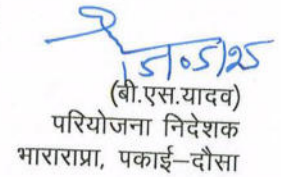 15/05/25
(बी.एस.यादव)
परियोजना निदेशक
भाराराप्रा, पकाई–दौसा